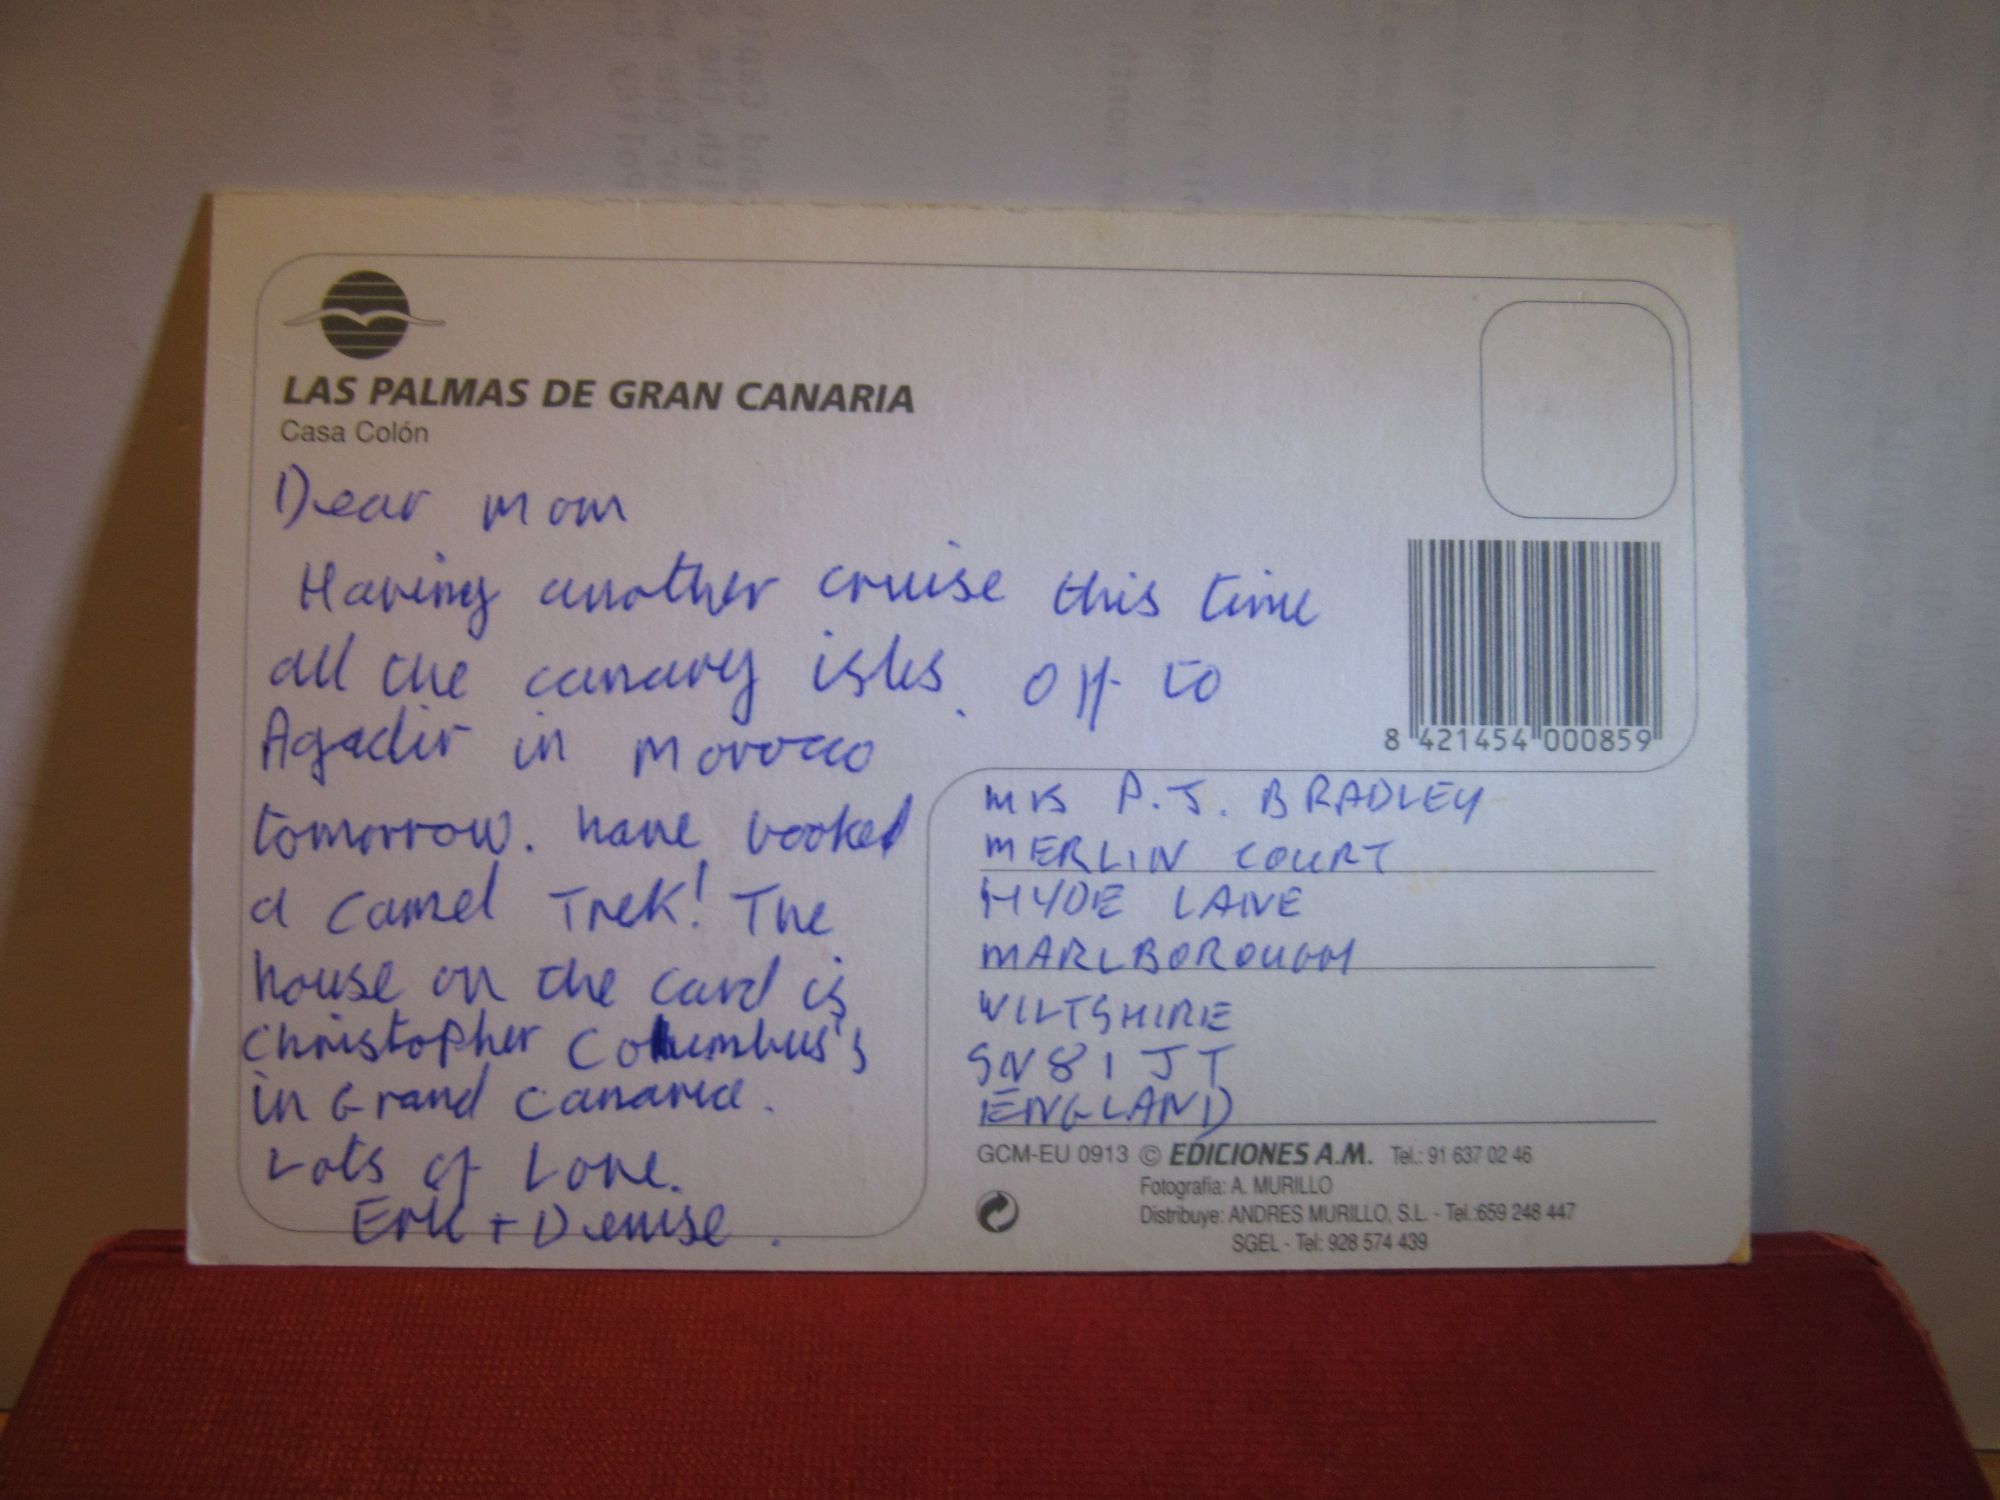 LAS PALMAS DE GRAN CANARIA
Casa Colón
Dear Mom
Having another cruise this time
all the canary isles. Off to
Agadir in Morocco
tomorrow. have booked
a camel Trek! The
house on the card is
Christopher Columbus's
in Grand Canaria.
Lots of Love.
Eric + Denise.
8 421454 000859
MRS P.J. BRADLEY
MERLIN COURT
HYDE LANE
MARLBOROUGH
WILTSHIRE
SN8 1JT
ENGLAND
GCM-EU 0913 © EDICIONES A.M. Tel.: 91 637 02 46
Fotografía: A. MURILLO
Distribuye: ANDRES MURILLO, S.L. - Tel.:659 248 447
SGEL - Tel: 928 574 439